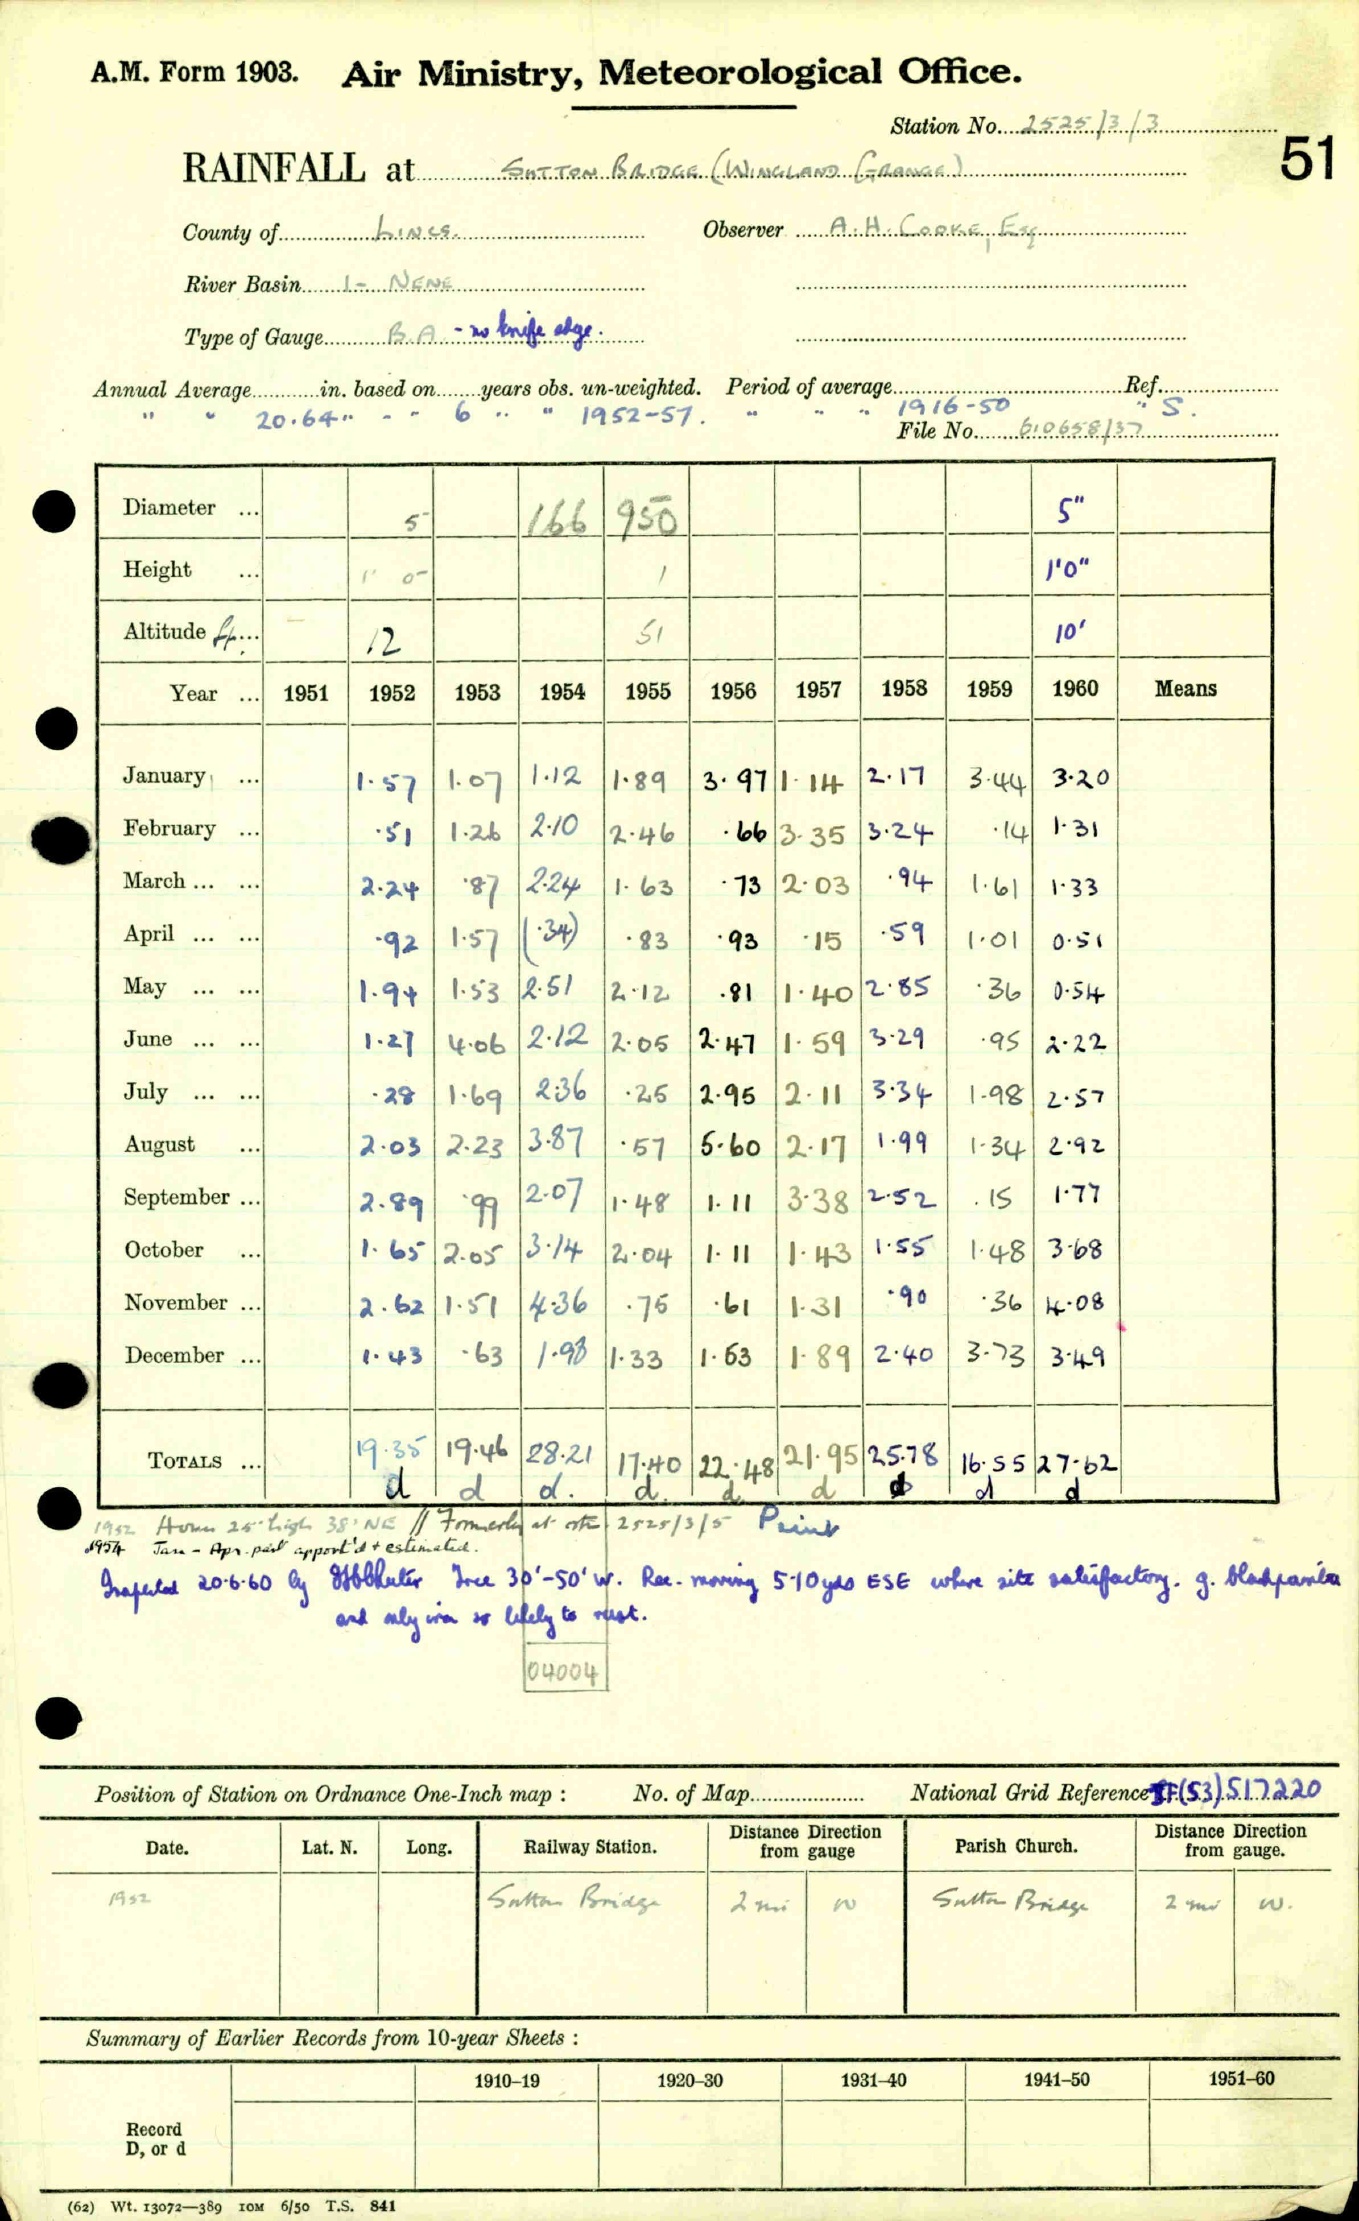 A.M. Form 1903. Air Ministry, Meteorological Office.
Station No. 2525/3/3
51
RAINFALL at SUTTON BRIDGE (WINGLAND GRANGE)
County of LINCS. Observer A. H. COOKE, Esq
River Basin 1- NENE
Type of Gauge B.A. - no knife edge.
Annual Average in. based on years obs. un-weighted. Period of average Ref.
" " 20.64" - - 6 " " 1952-57. " " " 1916-50 " S.
File No. 610658/37
Diameter ... 5 166 950 5"
Height ... 1' 0 1 1'0"
Altitude ft. ... 12 51 10'
Year ... 1951 1952 1953 1954 1955 1956 1957 1958 1959 1960 Means
January ... 1.57 1.07 1.12 1.89 3.97 1.14 2.17 3.44 3.20
February ... .51 1.26 2.10 2.46 .66 3.35 3.24 .14 1.31
March ... ... 2.24 .87 2.24 1.63 .73 2.03 .94 1.61 1.33
April ... ... .92 1.57 (.34) .83 .93 .15 .59 1.01 0.51
May ... ... 1.94 1.53 2.51 2.12 .81 1.40 2.85 .36 0.54
June ... ... 1.27 4.06 2.12 2.05 2.47 1.59 3.29 .95 2.22
July ... ... .28 1.69 2.36 .25 2.95 2.11 3.34 1.98 2.57
August ... 2.03 2.23 3.87 .57 5.60 2.17 1.99 1.34 2.92
September ... 2.89 .99 2.07 1.48 1.11 3.38 2.52 .15 1.77
October ... 1.65 2.05 3.14 2.04 1.11 1.43 1.55 1.48 3.68
November ... 2.62 1.51 4.36 .75 .61 1.31 .90 .36 4.08
December ... 1.43 .63 1.98 1.33 1.53 1.89 2.40 3.73 3.49
TOTALS ... 19.35 19.46 28.21 17.40 22.48 21.95 25.78 16.55 27.62
d d d. d. d d d d d
1952 House 25' high 38' NE // Formerly at stn 2525/3/5 Print
1954 Jan - Apr. part apport'd + estimated.
Inspected 20.6.60 by Tree 30'-50' W. Rec. moving 5-10 yds ESE where site satisfactory. g. black
and only iron so likely to rust.
04004
Position of Station on Ordnance One-Inch map : No. of Map National Grid Reference TF(53)517220
Date. Lat. N. Long. Railway Station. Distance from Direction gauge Parish Church. Distance from Direction gauge.
1952 Sutton Bridge 2 mi W Sutton Bridge 2 mi W.
Summary of Earlier Records from 10-year Sheets :
1910–19 1920–30 1931–40 1941–50 1951–60
Record
D, or d
(62) Wt. 13072—389 10M 6/50 T.S. 841